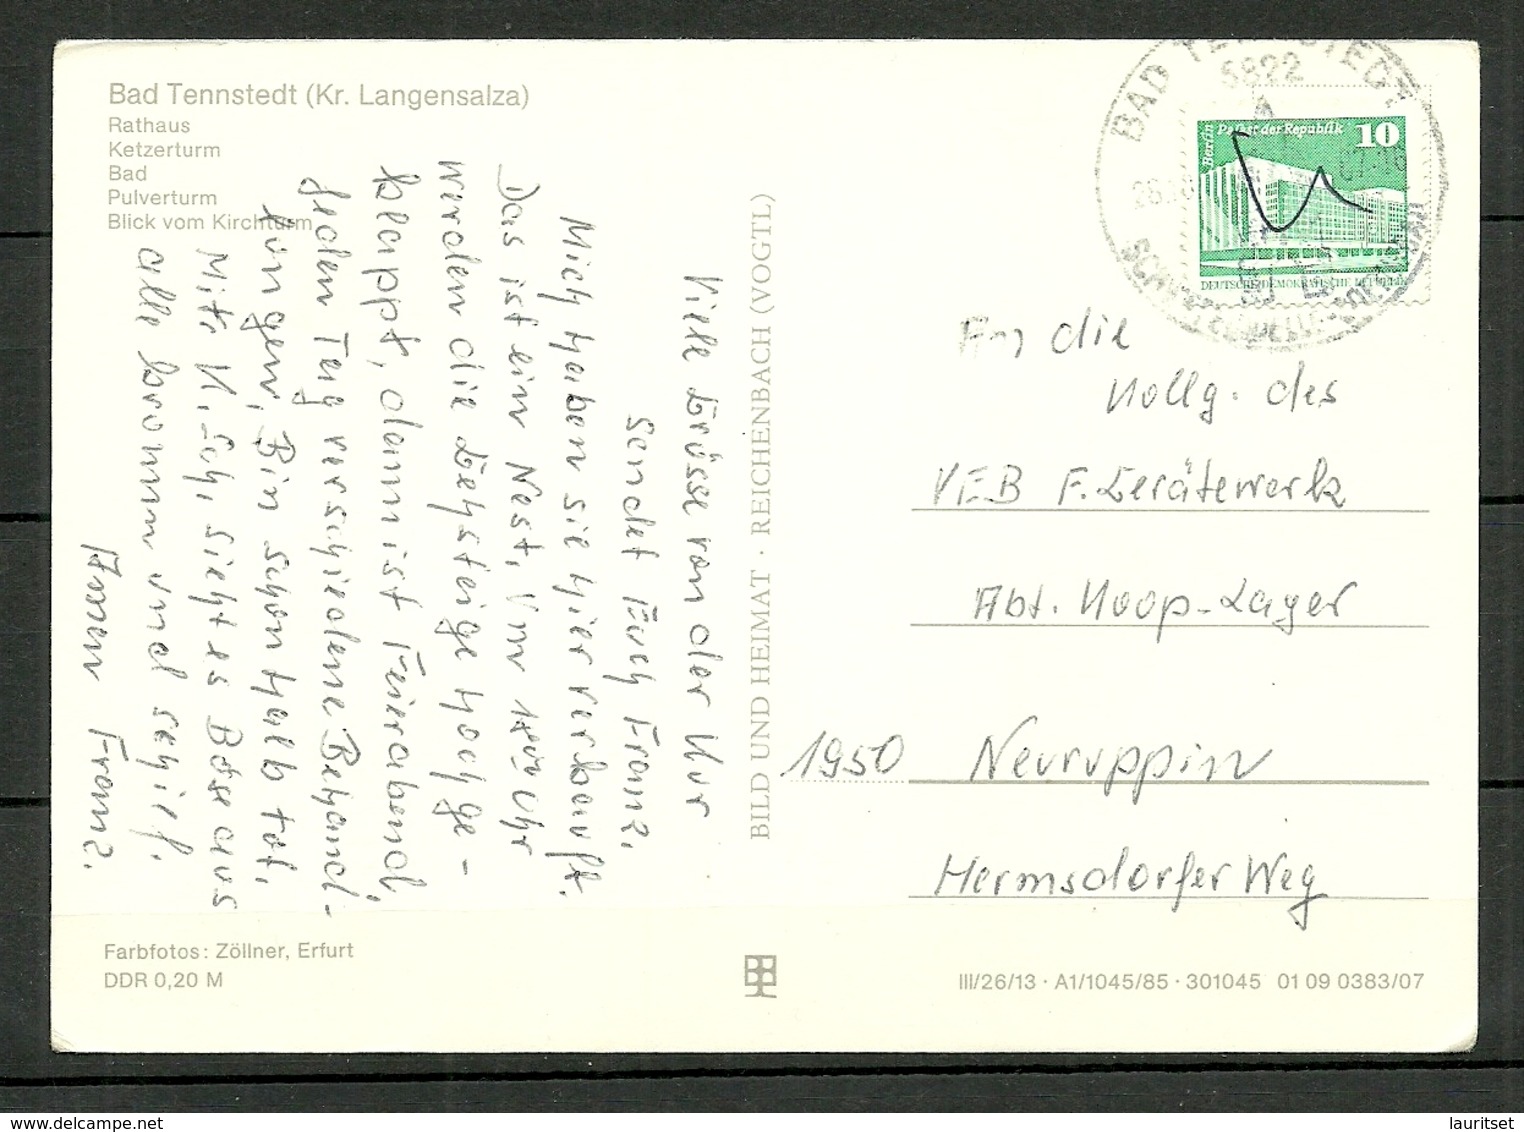 Bad Tennstedt (Kr. Langensalza)
Rathaus
Ketzerturm
Bad
Pulverturm
Blick vom Kirchturm
Viele Grüsse von der Kur
sendet Euch Franz.
Mich haben sie hier verkauft.
Das ist ein Nest, Um 18°° Uhr
werden die Gehsteige hochge-
klappt, dann ist Feierabend,
jeden Tag verschiedene Behand-
lungen, Bin schon halb tot.
Mit K. Sch. sieht es Böse aus
alle krumm und schief.
Franz.
BILD UND HEIMAT · REICHENBACH (VOGTL)
BAD TENNSTEDT
5822
Berlin
Palast der Republik
10
DEUTSCHE DEMOKRATISCHE REPUBLIK
An die
Kollg. des
VEB F. Gerätewerk
Abt. Koop-Lager
1950 Neuruppin
Hermsdorfer Weg
Farbfotos: Zöllner, Erfurt
DDR 0,20 M
III/26/13 · A1/1045/85 · 301045 01 09 0383/07
lauritset